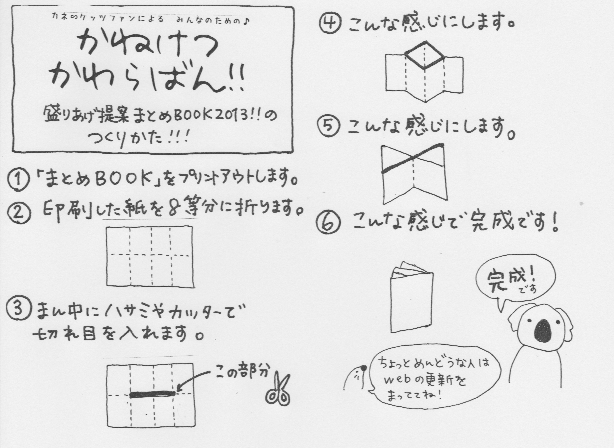 カネのケッツファンによる みんなのための♪
かねけつ
かわらばん!!
盛りあげ提案まとめBOOK2013!!の
つくりかた!!!
①「まとめBOOK」をプリントアウトします。
②印刷した紙を8等分に折ります。
③まん中にハサミやカッターで
切れ目を入れます。
この部分
④こんな感じにします。
⑤こんな感じにします。
⑥こんな感じで完成です!
完成!
です
ちょっとめんどうな人は
webの更新を
まっててね!